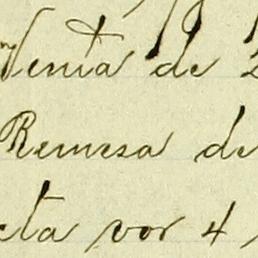 Venta de 2
Remesa de
cta por 4